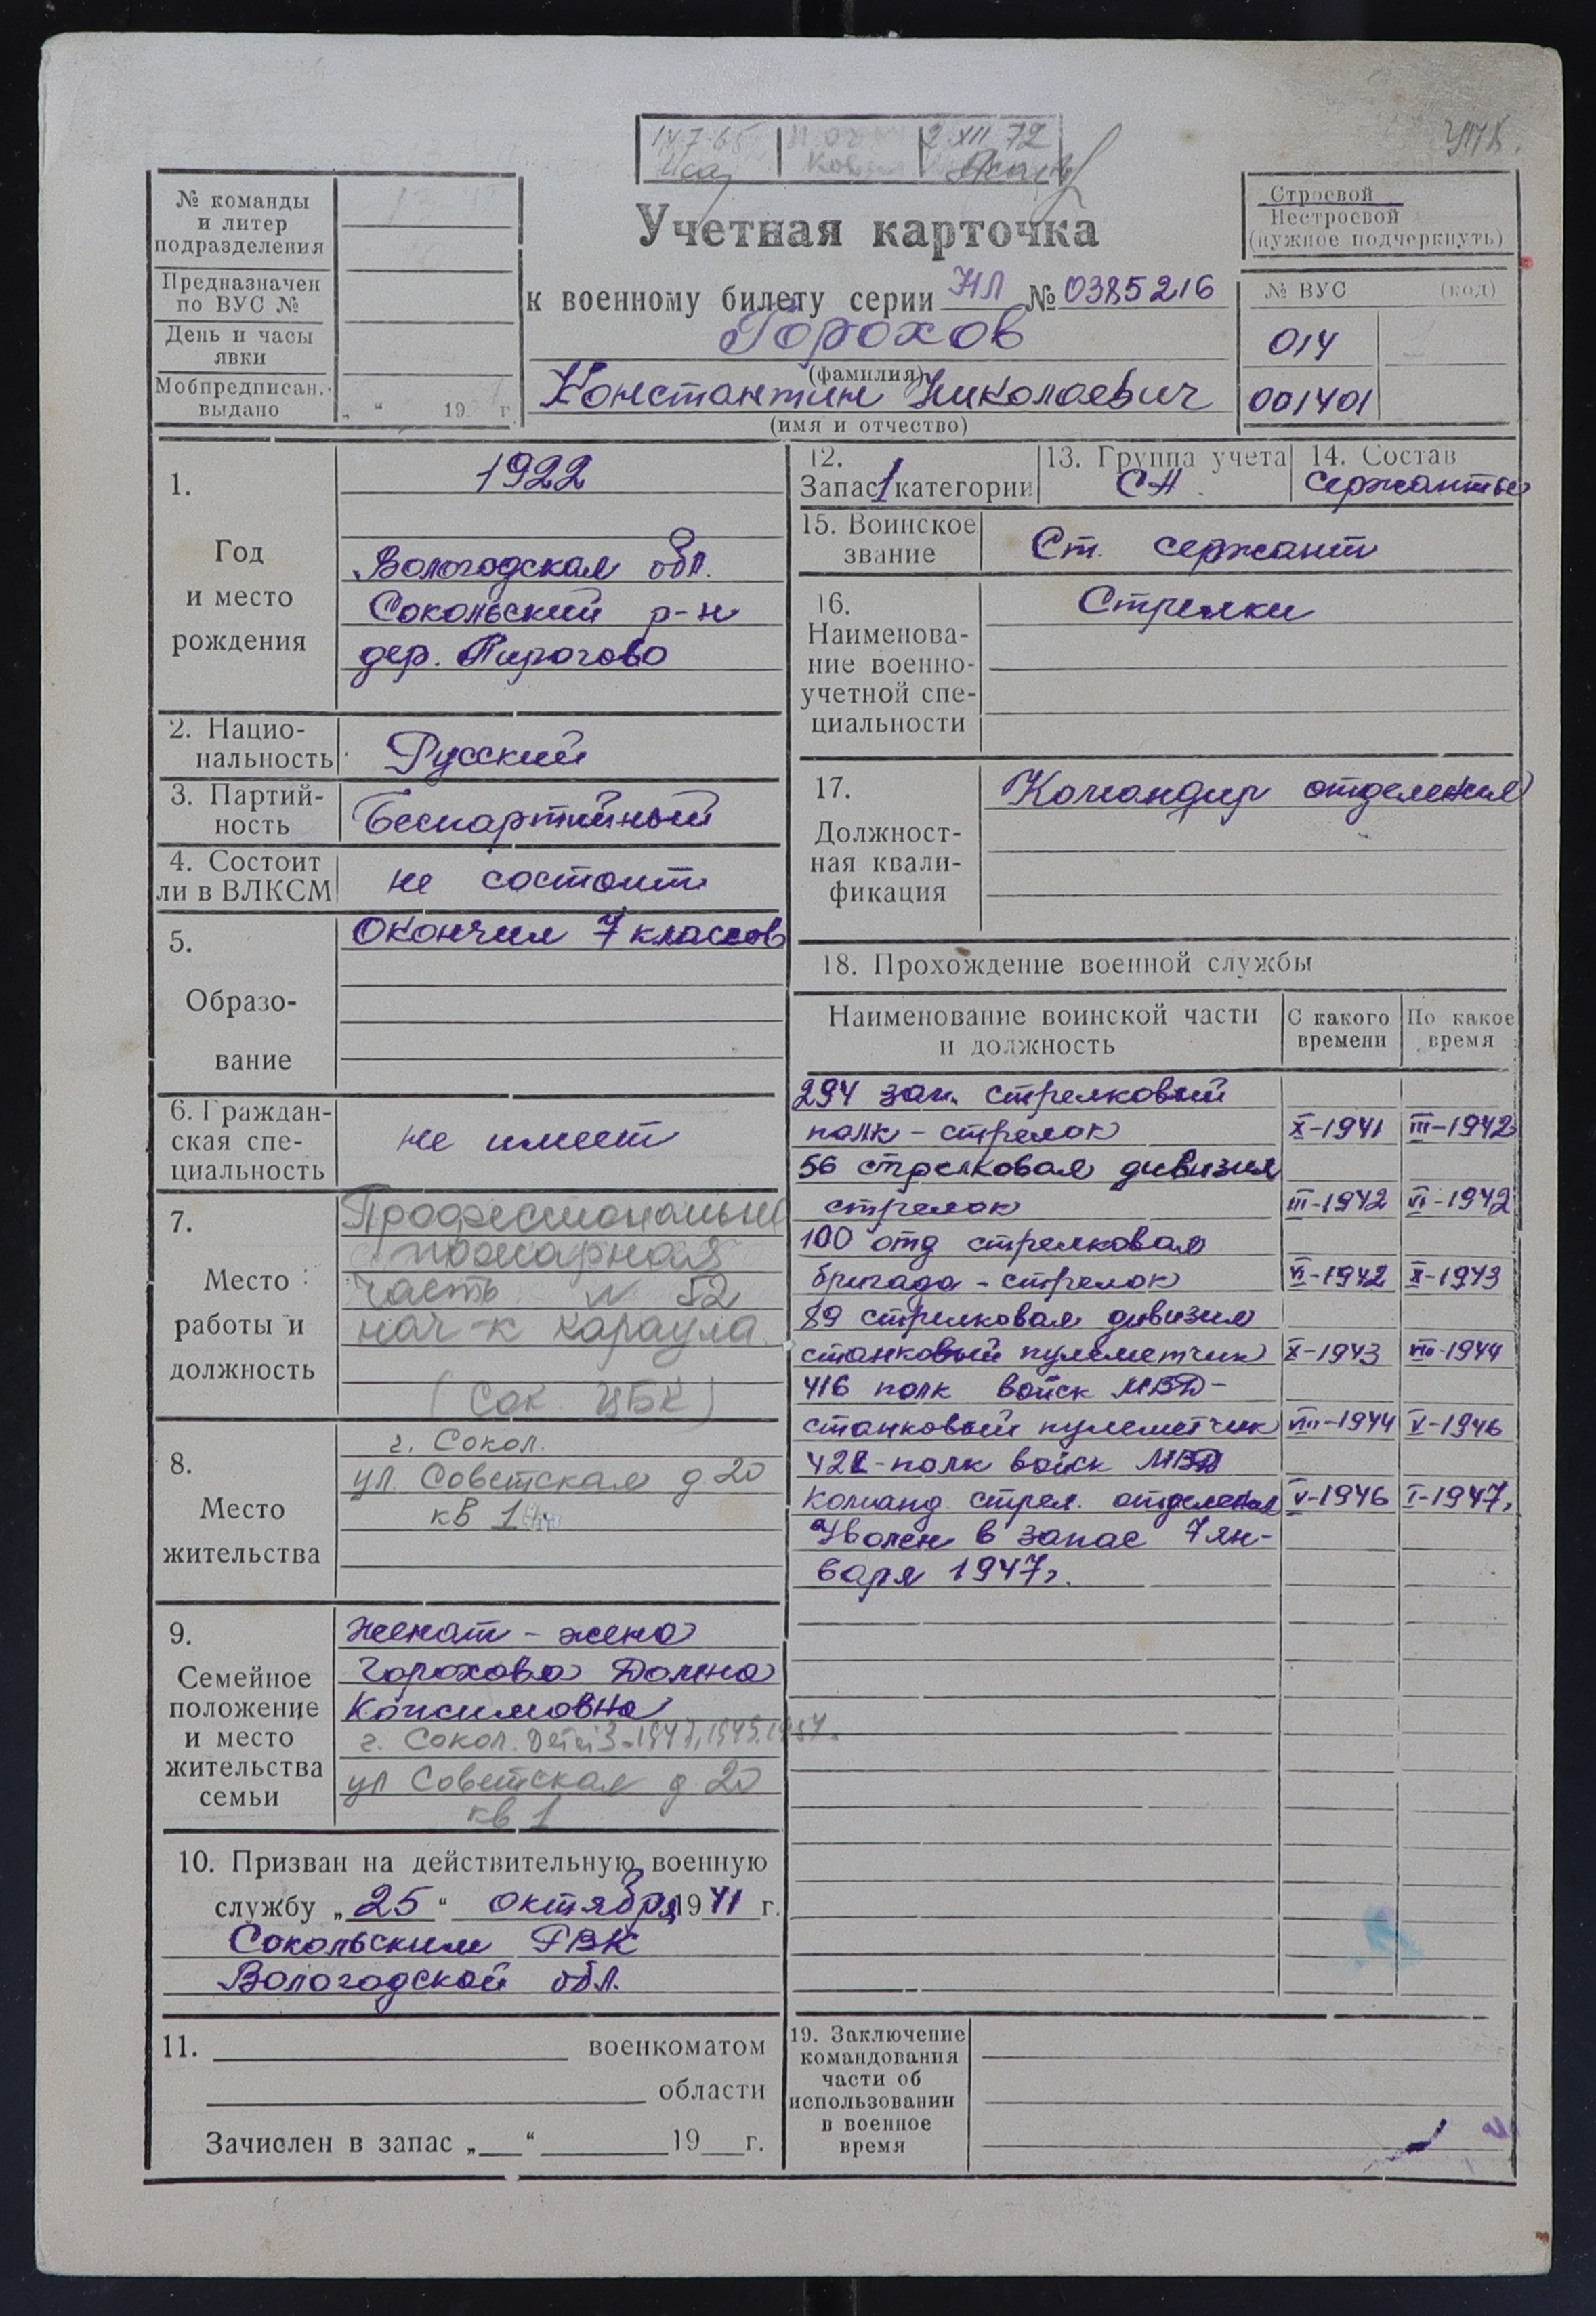 14 7-65
2 XII 72
№ команды
и литер
подразделения
Предназначен
по ВУС №
День и часы
явки
Мобпредписан.
выдано
„ “ 19 г.
Учетная карточка
к военному билету серии НЛ № 0385216
Горохов
(фамилия)
Константин Николаевич
(имя и отчество)
Строевой
Нестроевой
(нужное подчеркнуть)
№ ВУС (код)
014
001401
1.
Год
и место
рождения
1922
Вологодская обл.
Сокольский р-н
дер. Пирогово
2. Нацио-
нальность
Русский
3. Партий-
ность
Беспартийный
4. Состоит
ли в ВЛКСМ
не состоит
5.
Образо-
вание
Окончил 7 классов
6. Граждан-
ская спе-
циальность
не имеет
7.
Место
работы и
должность
Профессиональна
пожарная
часть № 52
нач-к караула
(Сок. ЦБК)
8.
Место
жительства
г. Сокол.
ул. Советская д. 20
кв 1
9.
Семейное
положение
и место
жительства
семьи
женат - жена
Горохова Домна
Максимовна
г. Сокол. Дети 3-1947, 1949, 1957.
ул Советская д. 20
кв 1
10. Призван на действительную военную
службу „25“ октября 1941 г.
Сокольским РВК
Вологодской обл.
11. военкоматом
области
Зачислен в запас „ “ 19 г.
12.
Запас 1 категории
13. Группа учета
СА
14. Состав
сержанты
15. Воинское
звание
Ст. сержант
16.
Наименова-
ние военно-
учетной спе-
циальности
Стрелки
17.
Должност-
ная квали-
фикация
Командир отделения
18. Прохождение военной службы
Наименование воинской части
и должность
С какого
времени
По какое
время
294 зап. стрелковый
полк - стрелок X-1941 III-1942
56 стрелковая дивизия
стрелок III-1942 VI-1942
100 отд стрелковая
бригада - стрелок VI-1942 X-1943
89 стрелковая дивизия
станковый пулеметчик X-1943 VIII-1944
416 полк войск МВД-
станковый пулеметчик VIII-1944 V-1946
421-полк войск МВД
команд. стрел. отделения V-1946 I-1947г
Уволен в запас 7 ян-
варя 1947г.
19. Заключение
командования
части об
использовании
в военное
время